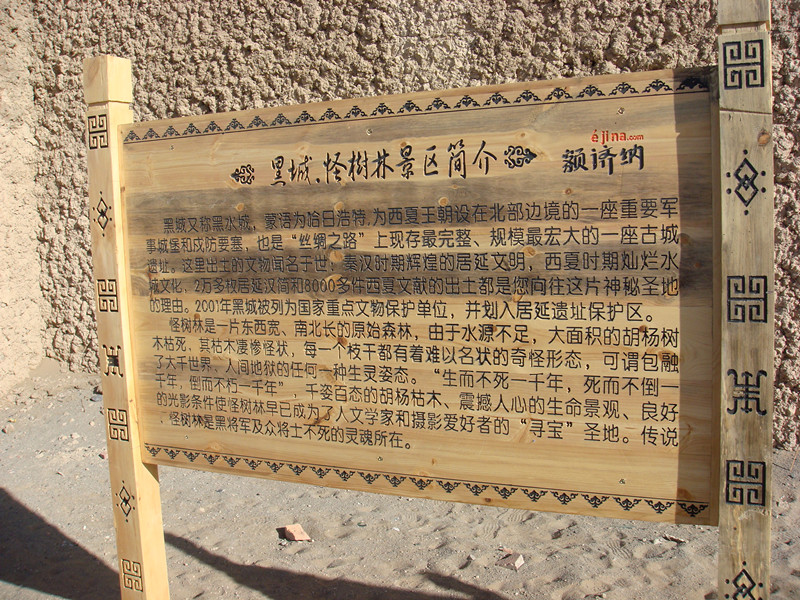 黑城、怪树林景区简介
ejina.com
额济纳
黑城又称黑水城，蒙语为哈日浩特，为西夏王朝设在北部边境的一座重要军
事城堡和戍防要塞，也是“丝绸之路”上现存最完整、规模最宏大的一座古城
遗址。这里出土的文物闻名于世，秦汉时期辉煌的居延文明，西夏时期灿烂水
城文化，2万多枚居延汉简和8000多件西夏文献的出土都是您向往这片神秘圣地
的理由。2001年黑城被列为国家重点文物保护单位，并划入居延遗址保护区。
怪树林是一片东西宽、南北长的原始森林，由于水源不足，大面积的胡杨树
木枯死，其枯木凄惨怪状，每一个枝干都有着难以名状的奇怪形态，可谓包融
了大千世界、人间地狱的任何一种生灵姿态。“生而不死一千年，死而不倒一
千年，倒而不朽一千年”，千姿百态的胡杨枯木、震撼人心的生命景观、良好
的光影条件使怪树林早已成为了人文学家和摄影爱好者的“寻宝”圣地。传说
，怪树林是黑将军及众将士不死的灵魂所在。